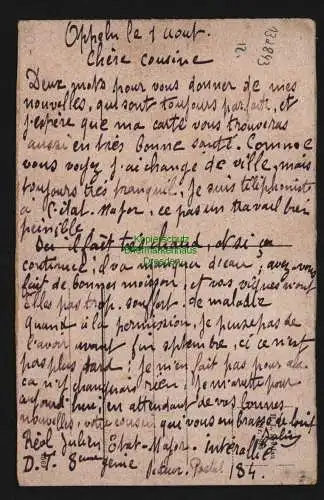 Oppeln le 1 Aout.
132893
12.
Chère cousine
Deux mots pour vous donner de mes
nouvelles, qui sont toujours parfaite, et
j'espère que ma carte vous trouveras
aussi en très bonne santé. Comme
vous voyez j'ai changé de ville, mais
toujours très tranquil. Je suis téléphoniste
à l'état-Major, ce pas un travail bien
penible
Ou il fait très chaud, et si ça
continue, il va manquer d'eau, avez-vous
fait de bonnes moison, et vos vignes n'ont
Elles pas trop souffert de maladie
Quand à la permission, je pense pas de
l'avoir avant fin septembre, ici ce n'est
pas plus tard; je m'en fait pas pour
ca n'est rien. Je m'arette pour
aujourd'hui, en attendant de vos bonnes
nouvelles, votre cousin qui vous embrasse de loin
Réol Julien Etat-Major-interallié
D.I. 8eme génie Secteur Postal 184.
Kopierschutz
Briefmarkenhaus
Dresden